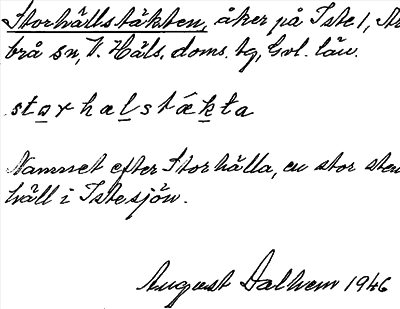 Storhällstäkten, åker på Iste 1, Ar
brå sn, V. Häls. doms. tg, Gvl. län.
storhalstákta
Namnet efter Storhälla, en stor sten
häll i Istesjön.
August Dalhem 1946